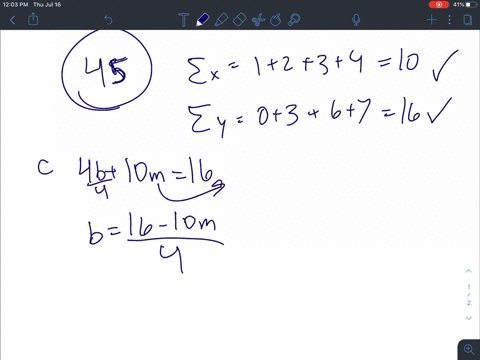 12:03 PM Thu Jul 16
41%
45
Σx = 1+2+3+4 = 10 ✓
Σy = 0+3+6+7 = 16 ✓
C 4b/4 + 10m = 16
b = (16 - 10m)/4
1/2